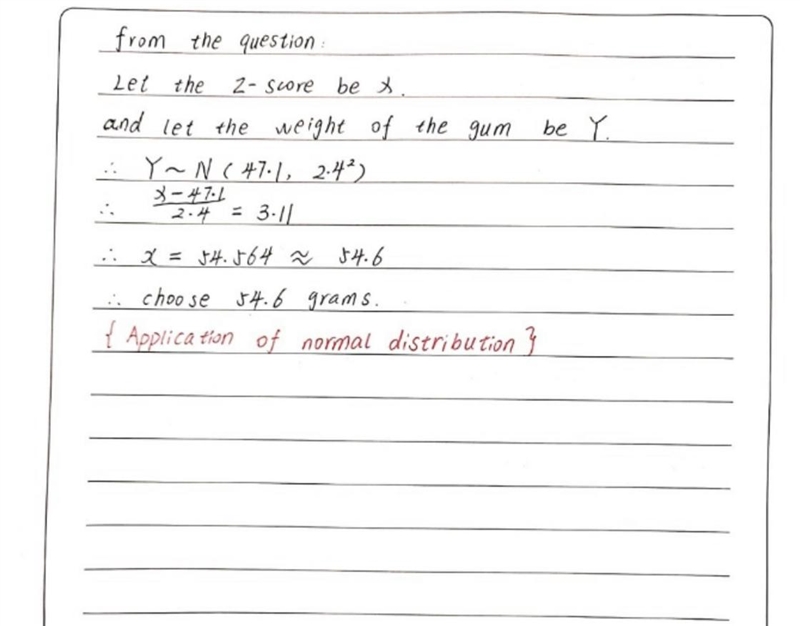 from the question:
Let the Z-score be x.
and let the weight of the gum be Y.
∴ Y ~ N (47.1, 2.4²)
∴ (x-47.1)/2.4 = 3.11
∴ x = 54.564 ≈ 54.6
∴ choose 54.6 grams.
{ Application of normal distribution }